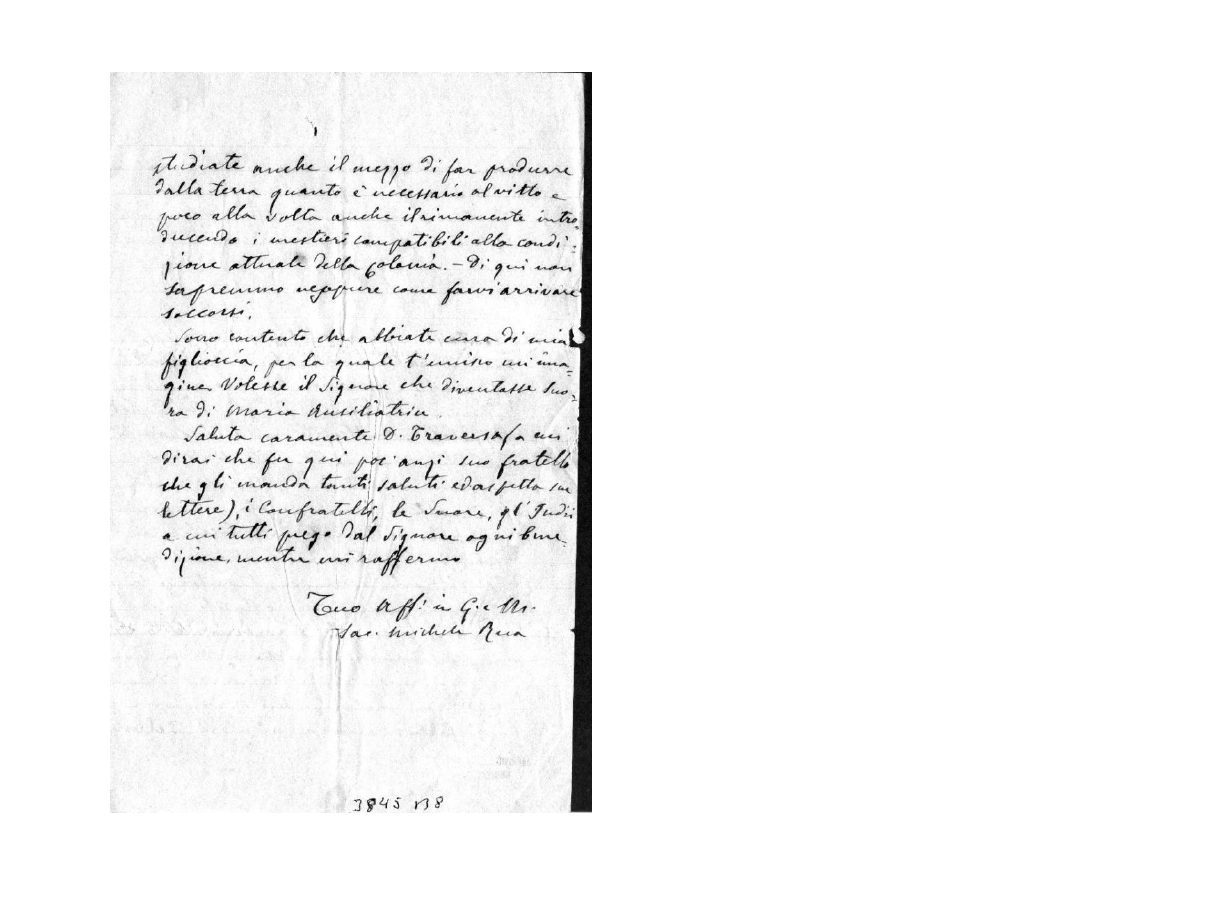 studiate anche il mezzo di far produrre
dalla terra quanto è necessario al vitto e
poco alla volta anche il rimanente intro-
ducendo i mestieri compatibili alla condi-
zione attuale della Colonia. – Di qui non
sapremmo neppure come farvi arrivare
soccorsi.
Sono contento che abbiate cura di mia
figlioccia, per la quale t'unisco un'imma-
gine. Volesse il Signore che diventasse Suo-
ra di Maria Ausiliatrice.
Saluta caramente D. Traversa (a cui
dirai che fu qui poc'anzi suo fratello
che gli manda tanti saluti ed aspetta sue
lettere), i Confratelli, le Suore, gl'Indii
a cui tutti prego dal Signore ogni bene-
dizione, mentre mi raffermo
Tuo Aff. in G. e M.
Sac. Michele Rua
3845 B8